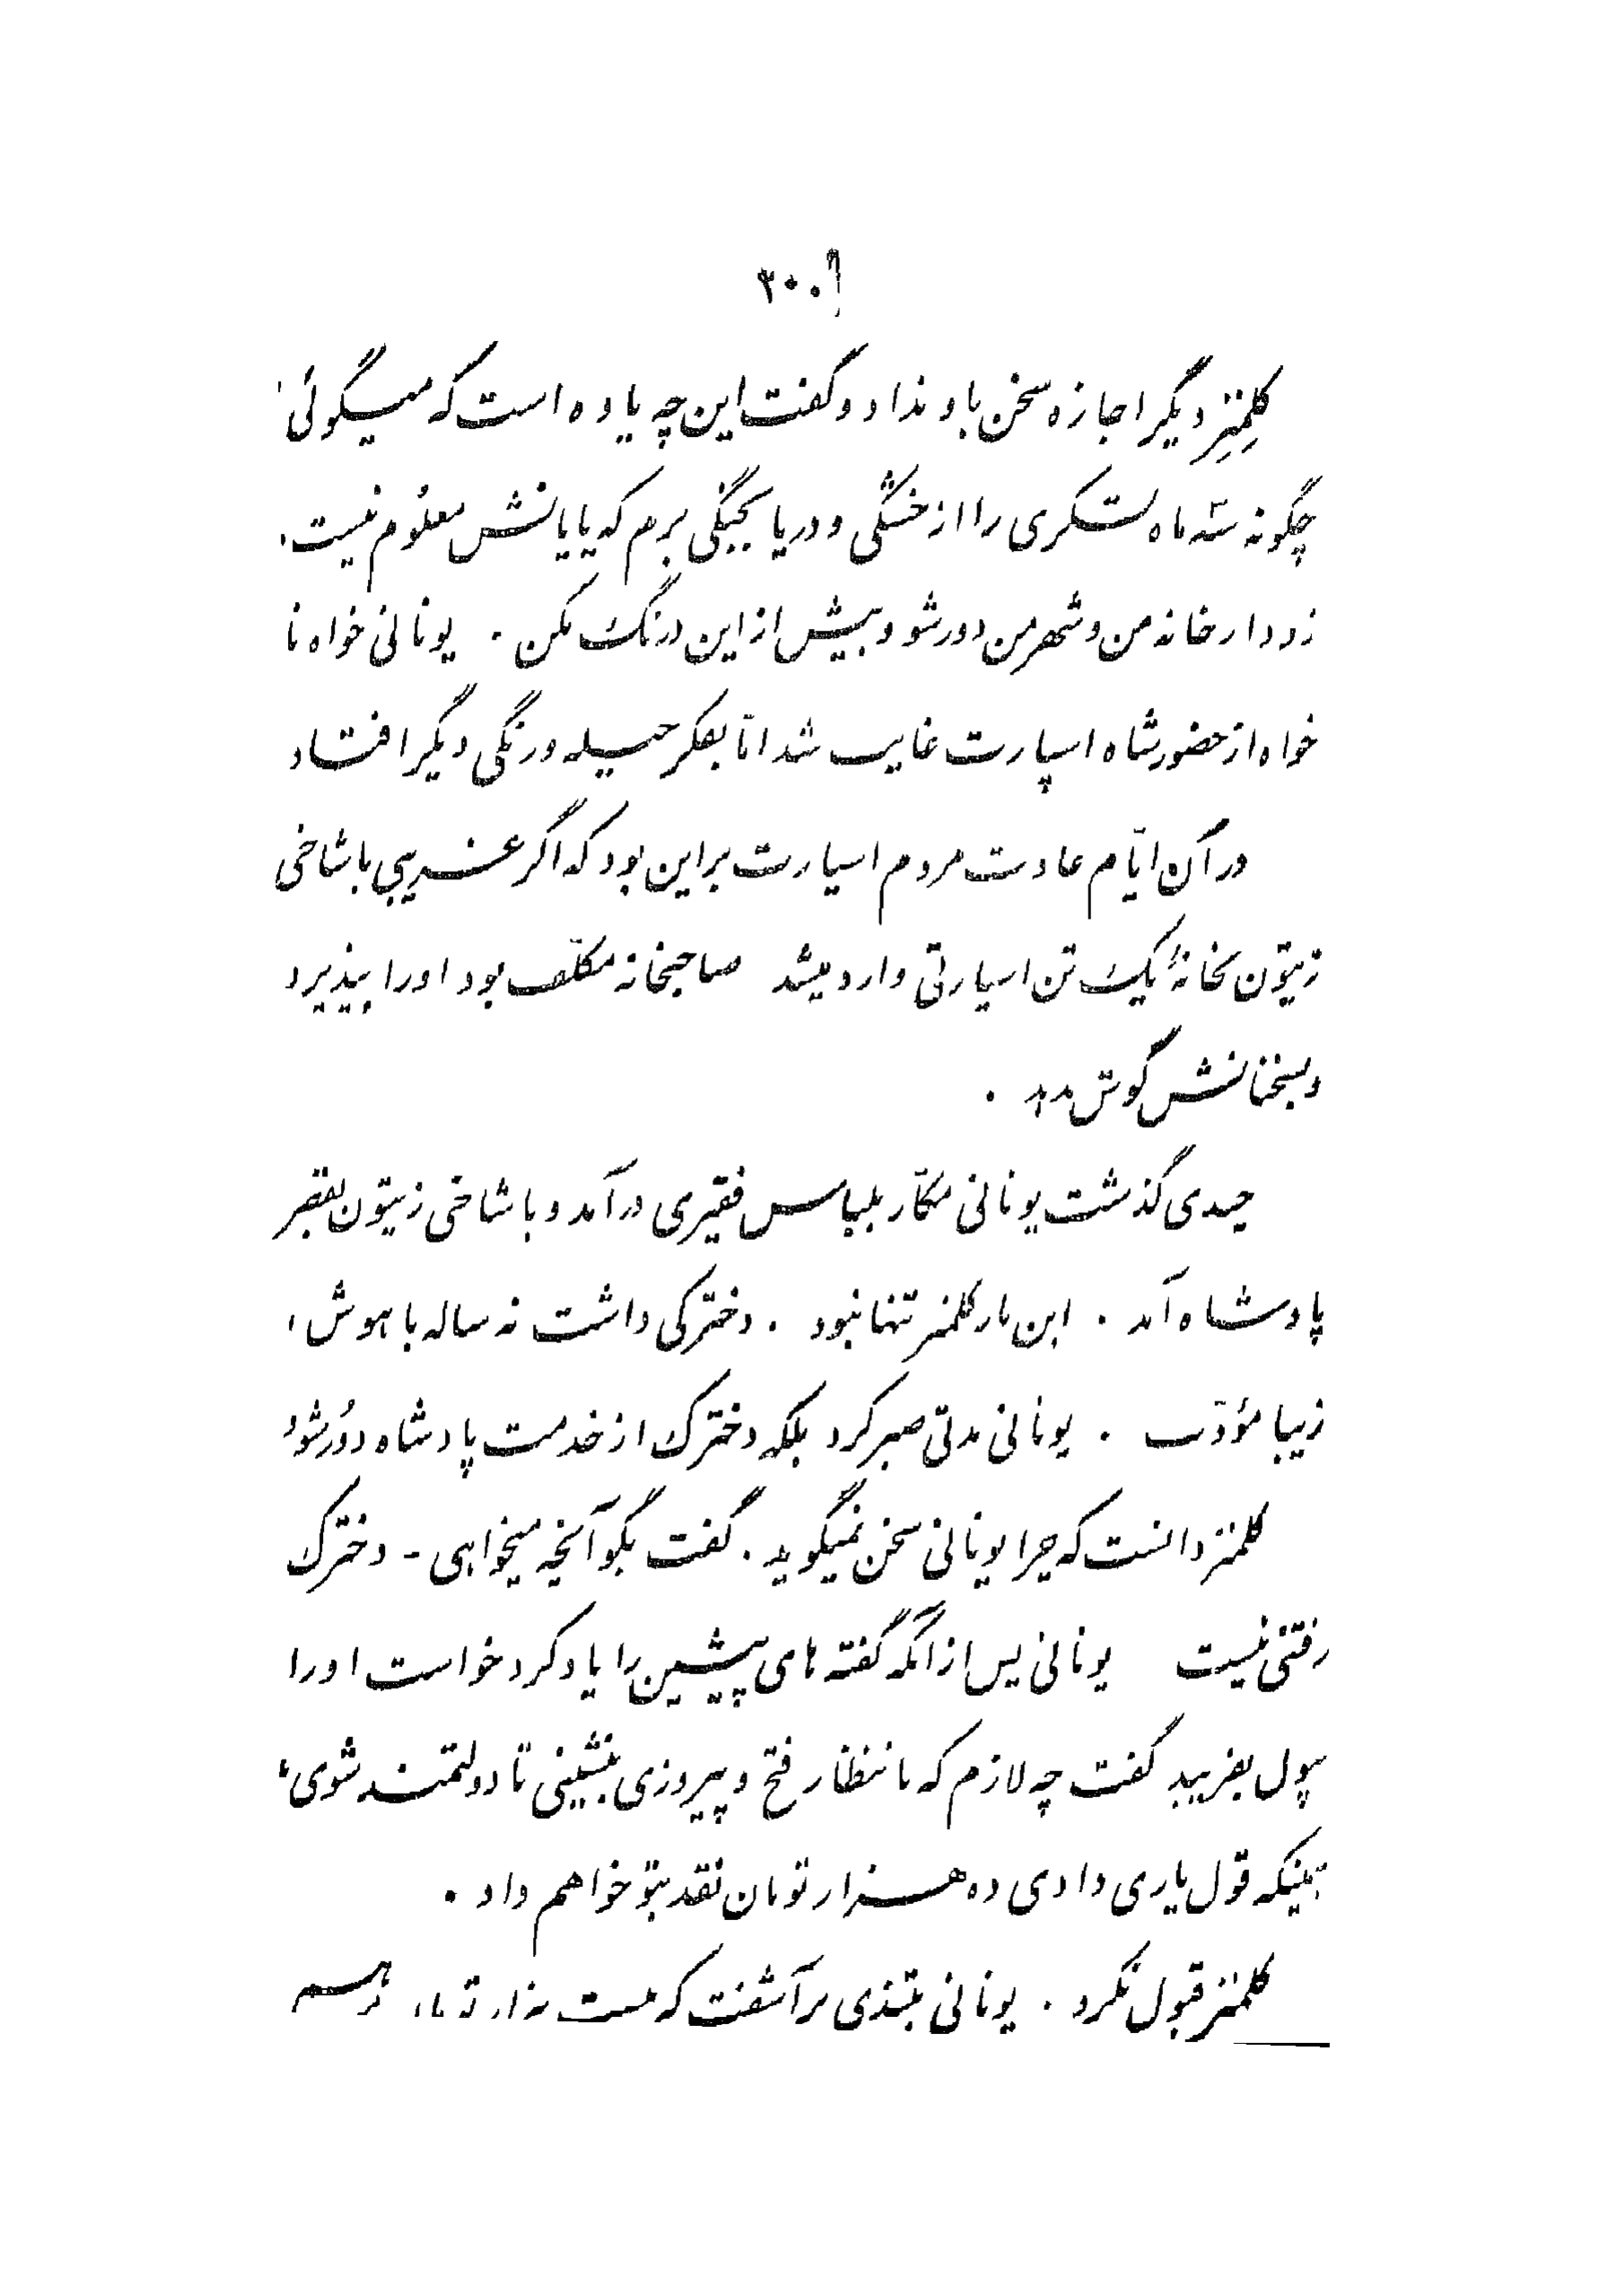 ۳۰۰
کلِمِنِز دیگر اجازه سخن باو نداد و گفت این چه یاوه است که میگوئی
چگونه سه ماه لشکری را از خشگی و دریا بجنگی برم که پایانش معلُوم نیست.
زود از خانه من و شهر من دور شو و بیش از این درنگ مکن . یونانی خواه نا
خواه از حضور شاه اسپارت غایب شد امّا بفکر حیله و رنگی دیگر افتاد
در آن ایّام عادت مردم اسپارت بر این بود که اگر غریبی با شاخی
زیتون بخانهٔ یک تن اسپارتی وارد میشد صاحبخانه مکلّف بود او را بپذیرد
و بسخنانش گوش دهد .
چندی گذشت یونانی مکّار بلباس فقیری درآمد و با شاخی زیتون بقصر
پادشاه آمد . این بار کلمنز تنها نبود . دخترکی داشت نه ساله باهوش ،
زیبا مؤدّب . یونانی مدتی صبر کرد بلکه دخترک از خدمت پادشاه دوُر شود
کلمنز دانست که چرا یونانی سخن نمیگوید . گفت بگو آنچه میخواهی - دخترک
رفتنی نیست یونانی پس از آنکه گفته های پیشین را یاد کرد خواست او را
بپول بفریبد گفت چه لازم که بانتظار فتح و پیروزی بنشینی تا دولتمند شوی ،
همینکه قول یاری دادی ده هزار تومان نقد بتو خواهم داد .
کلمنز قبول نکرد . یونانی بتندی برآشفت که بیست هزار تومان